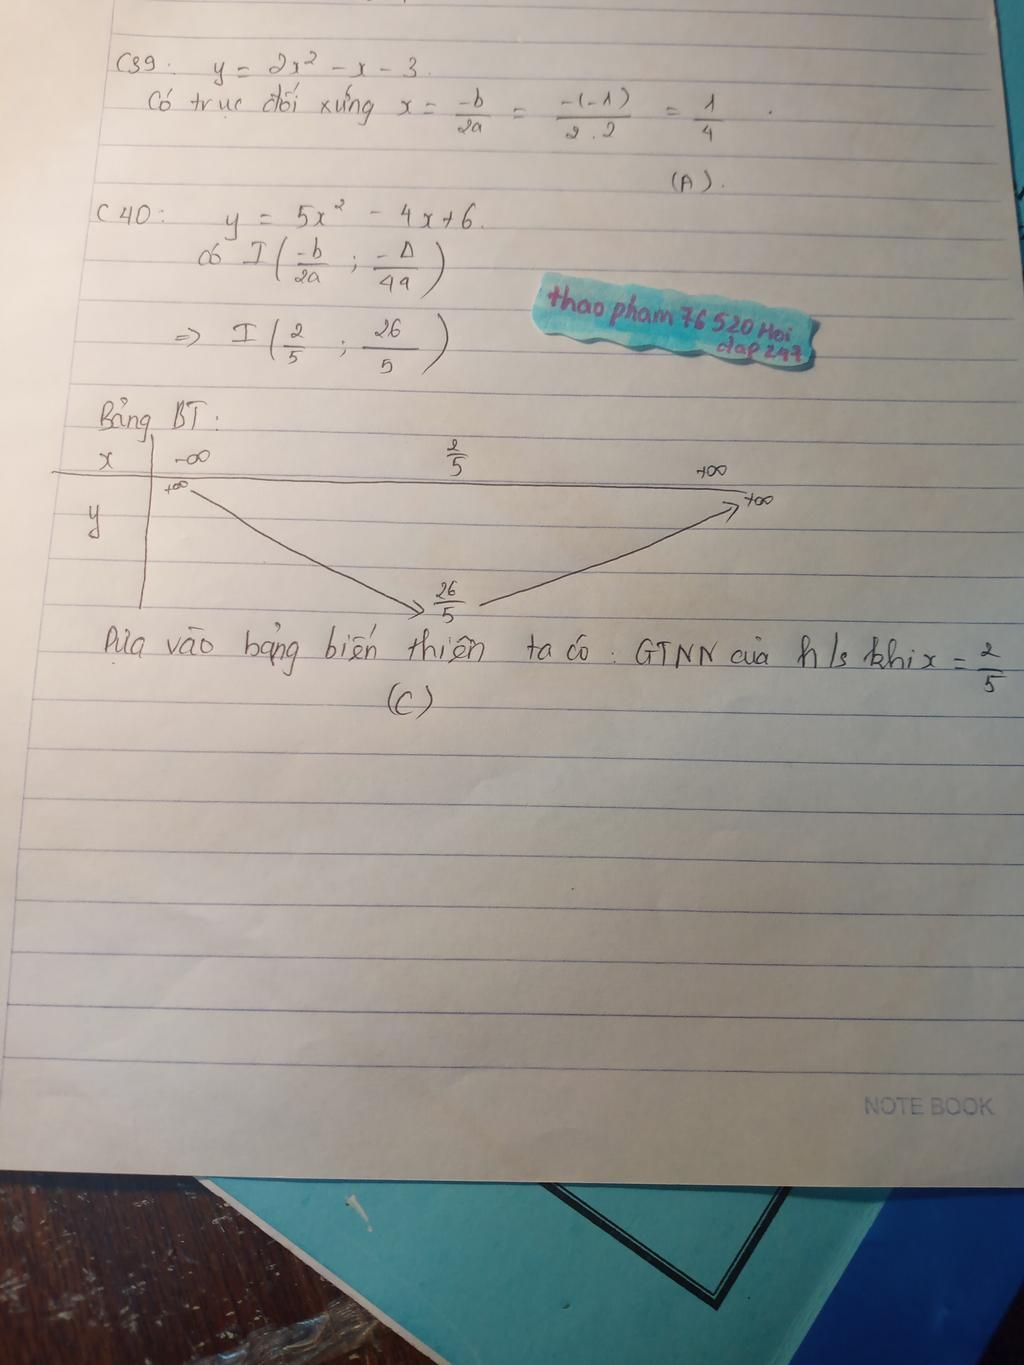 C39: y = 2x² - x - 3.
Có trục đối xứng x = -b/2a = -(-1)/2.2 = 1/4.
(A).
C40: y = 5x² - 4x + 6.
có I(-b/2a ; -Δ/4a)
=> I(2/5 ; 26/5)
thao pham 76 520 Hoi
dap 247
Bảng BT:
x -∞ 2/5 +∞
y +∞ 26/5 +∞
Dựa vào bảng biến thiên ta có: GTNN của h/s khi x = 2/5
(C)
NOTE BOOK